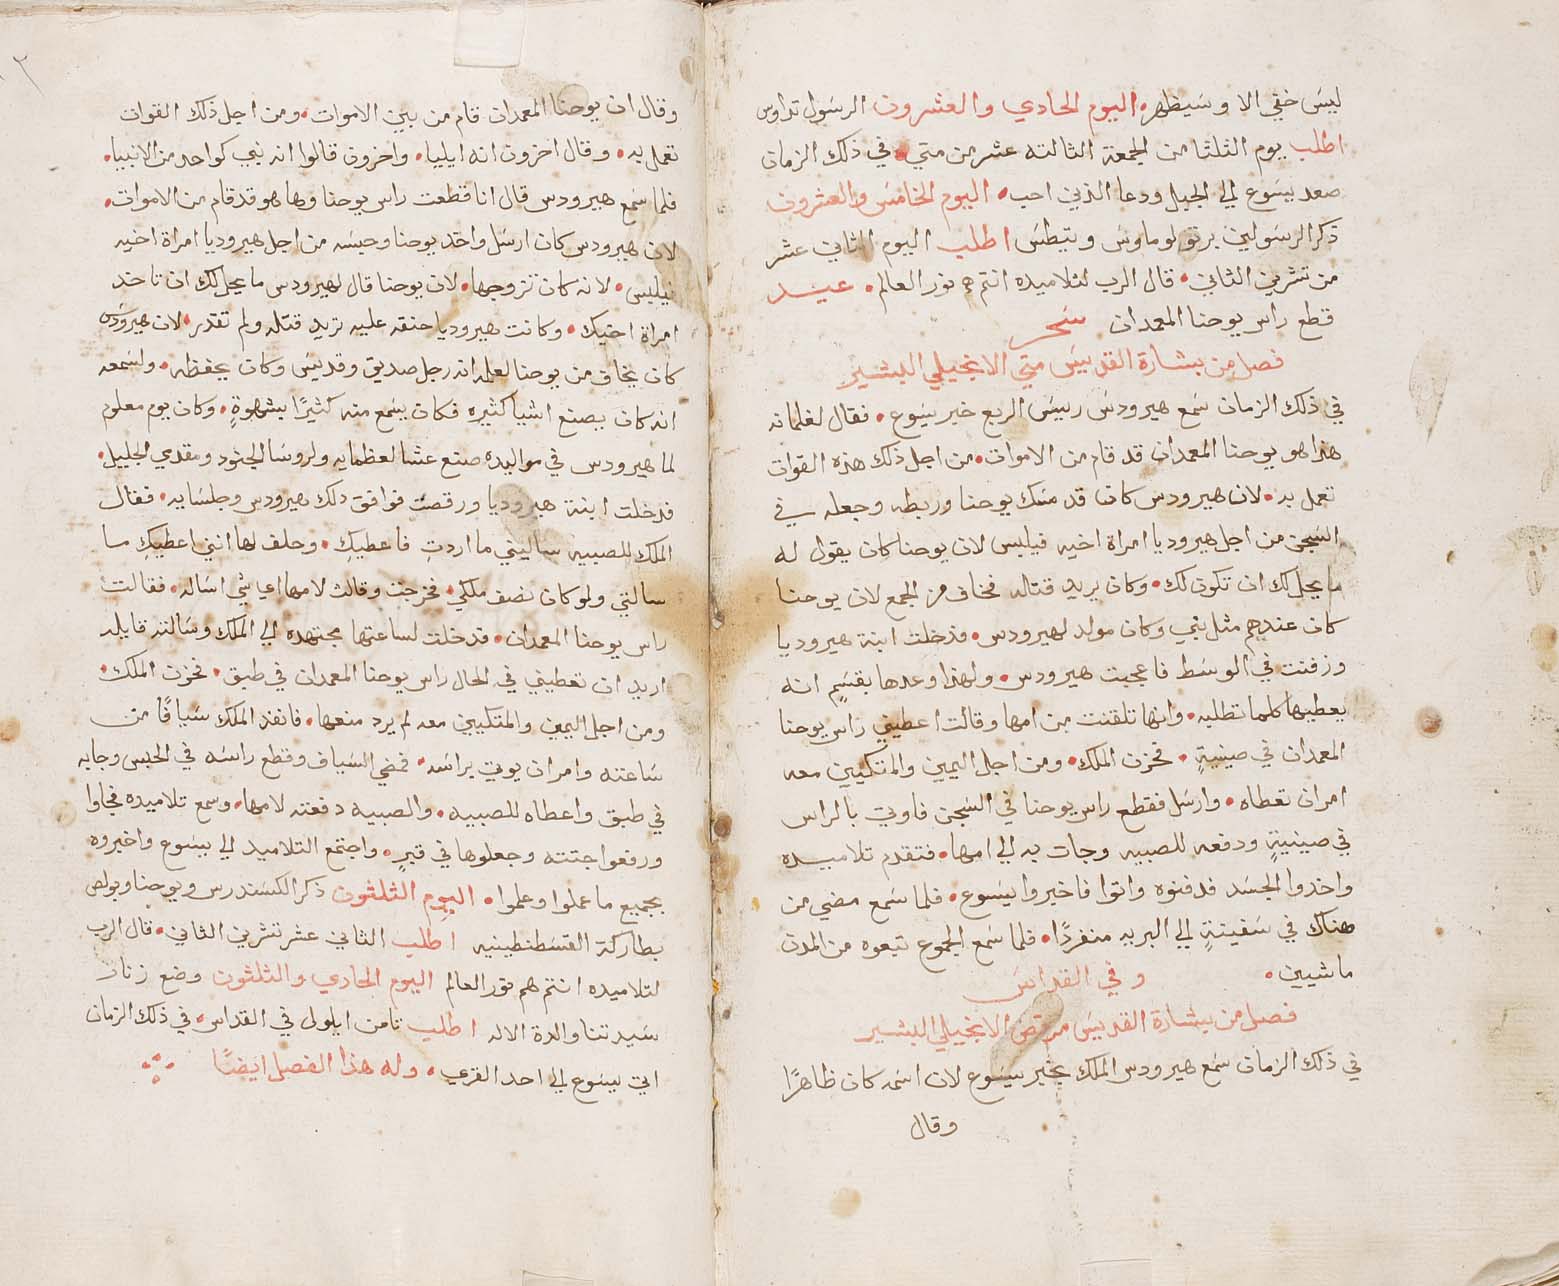 ليس خفي الا وسيظهر. اليوم الحادي والعشرون الرسول تداوس
اطلب يوم الثلثا من الجمعة الثالثه عشر من متي. في ذلك الزمان
صعد يسوع الي الجبل ودعا الذين احب. اليوم الخامس والعشرون
ذكر الرسولين برتولوماوس وتيطس اطلب اليوم الثاني عشر
من تشرين الثاني. قال الرب لتلاميده انتم هم نور العالم. عيد
قطع راس يوحنا المعمدان سحر
فصل من بشارة القديس متي الانجيلي البشير
في ذلك الزمان سمع هيرودس رييس الربع خبر يسوع. فقال لغلمانه
هذا هو يوحنا المعمدان قد قام من الاموات. من اجل ذلك هذه القوات
تعمل به. لان هيرودس كان قد مسك يوحنا وربطه وجعله في
السجن من اجل هيروديا امراة اخيه فيلبس لان يوحنا كان يقول له
ما يحل لك ان تكون لك. وكان يريد قتله فخاف من الجمع لان يوحنا
كان عندهم مثل نبي وكان مولد لهيرودس. فدخلت ابنة هيروديا
وزفنت في الوسط فاعجبت هيرودس. ولهذا وعدها بقسم انه
يعطيها كلما تطلبه. وانها تلقنت من امها وقالت اعطيني راس يوحنا
المعمدان في صينيةٍ. فحزن الملك. ومن اجل اليمين والمتكيين معه
امر ان تعطاه. وارسل فقطع راس يوحنا في السجن فاوتي بالراس
في صينيةٍ ودفعه للصبيه وجات به الي امها. فتقدم تلاميده
واخدوا الجسد فدفنوه واتوا فاخبروا يسوع. فلما سمع مضي من
هناك في سفينةٍ الي البريه منفردًا. فلما سمع الجموع تبعوه من المدن
ماشيين. وفي القداس
فصل من بشارة القديس مرقص الانجيلي البشير
في ذلك الزمان سمع هيرودس الملك بخبر يسوع لان اسمه كان ظاهرًا
وقال
وقال ان يوحنا المعمدان قام من بين الاموات. ومن اجل ذلك القوات
تعمل به. وقال اخرون انه ايليا. واخرون قالوا انه نبي كواحد من الانبيا.
فلما سمع هيرودس قال انا قطعت راس يوحنا وها هو قد قام من الاموات.
لان هيرودس كان ارسل واخد يوحنا وحبسه من اجل هيروديا امراة اخيه
فيلبس. لانه كان تزوجها. لان يوحنا قال لهيرودس ما يحل لك ان تاخد
امراة اخيك. وكانت هيروديا حنقه عليه تريد قتله ولم تقدر. لان هيرودس
كان يخاف من يوحنا لعلمه انه رجل صديق وقديس وكان يحفظه. ولسمعه
انه كان يصنع اشيا كثيره فكان يسمع منه كثيرًا بشهوةٍ. وكان يوم معلوم
لما هيرودس في مواليده صنع عشا لعظمايه ولروسا الجنود ومقدمي الجليل.
فدخلت ابنة هيروديا ورقصت فوافق دلك هيرودس وجلسايه. فقال
الملك للصبيه ساليني ما اردتِ فاعطيكِ. وحلف لها انني اعطيكِ ما
سالتي ولو كان نصف ملكي. فخرجت وقالت لامها اي شي اساله. فقالت
راس يوحنا المعمدان. فدخلت لساعتها مجتهده الي الملك وسالته قايله
اريد ان تعطيني في الحال راس يوحنا المعمدان في طبق. فحزن الملك.
ومن اجل اليمين والمتكيين معه لم يرد منعها. فانفد الملك سيافًا من
ساعته وامر ان يوتي براسه. فمضي السياف وقطع راسه في الحبس وجابه
في طبق واعطاه للصبيه. والصبيه دفعته لامها. وسمع تلاميده فجاوا
ورفعوا جتته وجعلوها في قبرٍ. واجتمع التلاميد الي يسوع واخبروه
بجميع ما عملوا وعلموا. اليوم الثلثون ذكر الكسندرس ويوحنا وبولص
بطاركة القسطنطينيه اطلب الثاني عشر تشرين الثاني. قال الرب
لتلاميده انتم هم نور العالم اليوم الحادي والثلثون وضع زنار
سيدتنا والدة الاله اطلب تامن ايلول في القداس. في ذلك الزمان
اتي يسوع الي احد القري. وله هذا الفصل ايضًا